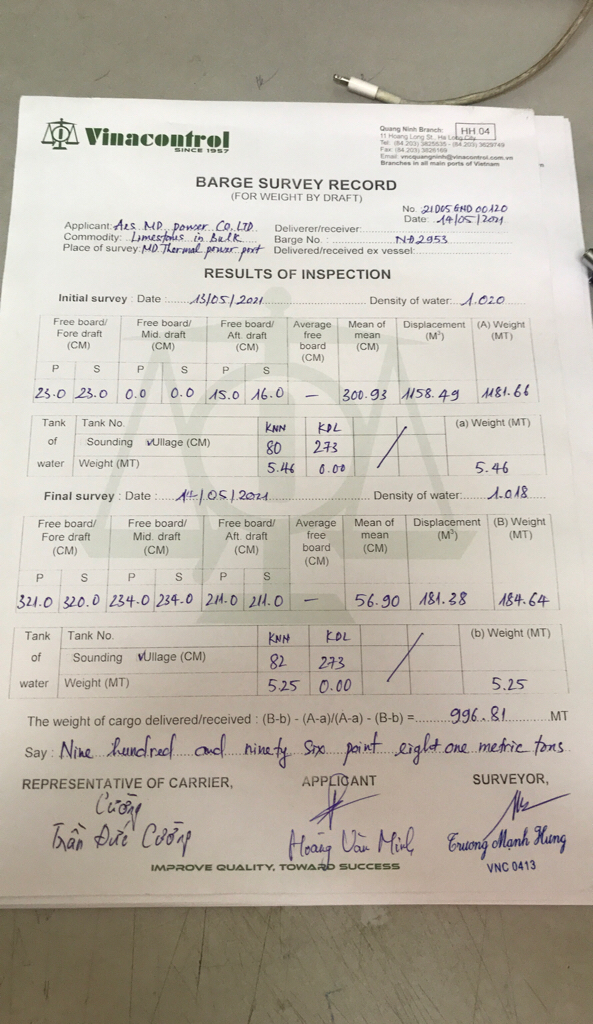 Vinacontrol
SINCE 1957
Quang Ninh Branch:
HH.04
11 Hoang Long St., Ha Long City
Tel: (84.203) 3825535 - (84.203) 3629749
Fax: (84.203) 3826169
Email: vncquangninh@vinacontrol.com.vn
Branches in all main ports of Vietnam
BARGE SURVEY RECORD
(FOR WEIGHT BY DRAFT)
No. 21D05GND00120
Date: 14/05/2021
Applicant: AES MD power Co. LTD Deliverer/receiver:
Commodity: Limestone in bulk Barge No. : NĐ2953
Place of survey: MD Thermal power port Delivered/received ex vessel:
RESULTS OF INSPECTION
Initial survey : Date : 13/05/2021 Density of water: 1.020
Free board/ Fore draft (CM) Free board/ Mid. draft (CM) Free board/ Aft. draft (CM) Average free board (CM) Mean of mean (CM) Displacement (M³) (A) Weight (MT)
P S P S P S
23.0 23.0 0.0 0.0 15.0 16.0 — 300.93 1158.49 1181.66
Tank of water
Tank No. KNN KDL (a) Weight (MT)
Sounding vUllage (CM) 80 273
Weight (MT) 5.46 0.00 5.46
Final survey : Date : 14/05/2021 Density of water: 1.018
Free board/ Fore draft (CM) Free board/ Mid. draft (CM) Free board/ Aft. draft (CM) Average free board (CM) Mean of mean (CM) Displacement (M³) (B) Weight (MT)
P S P S P S
321.0 320.0 234.0 234.0 211.0 211.0 — 56.90 181.38 184.64
Tank of water
Tank No. KNN KDL (b) Weight (MT)
Sounding vUllage (CM) 82 273
Weight (MT) 5.25 0.00 5.25
The weight of cargo delivered/received : (B-b) - (A-a)/(A-a) - (B-b) = 996.81 MT
Say : Nine hundred and ninety six point eight one metric tons
REPRESENTATIVE OF CARRIER, APPLICANT SURVEYOR,
Cường
Trần Đức Cường Hoàng Văn Minh Trương Mạnh Hùng
VNC 0413
IMPROVE QUALITY, TOWARD SUCCESS